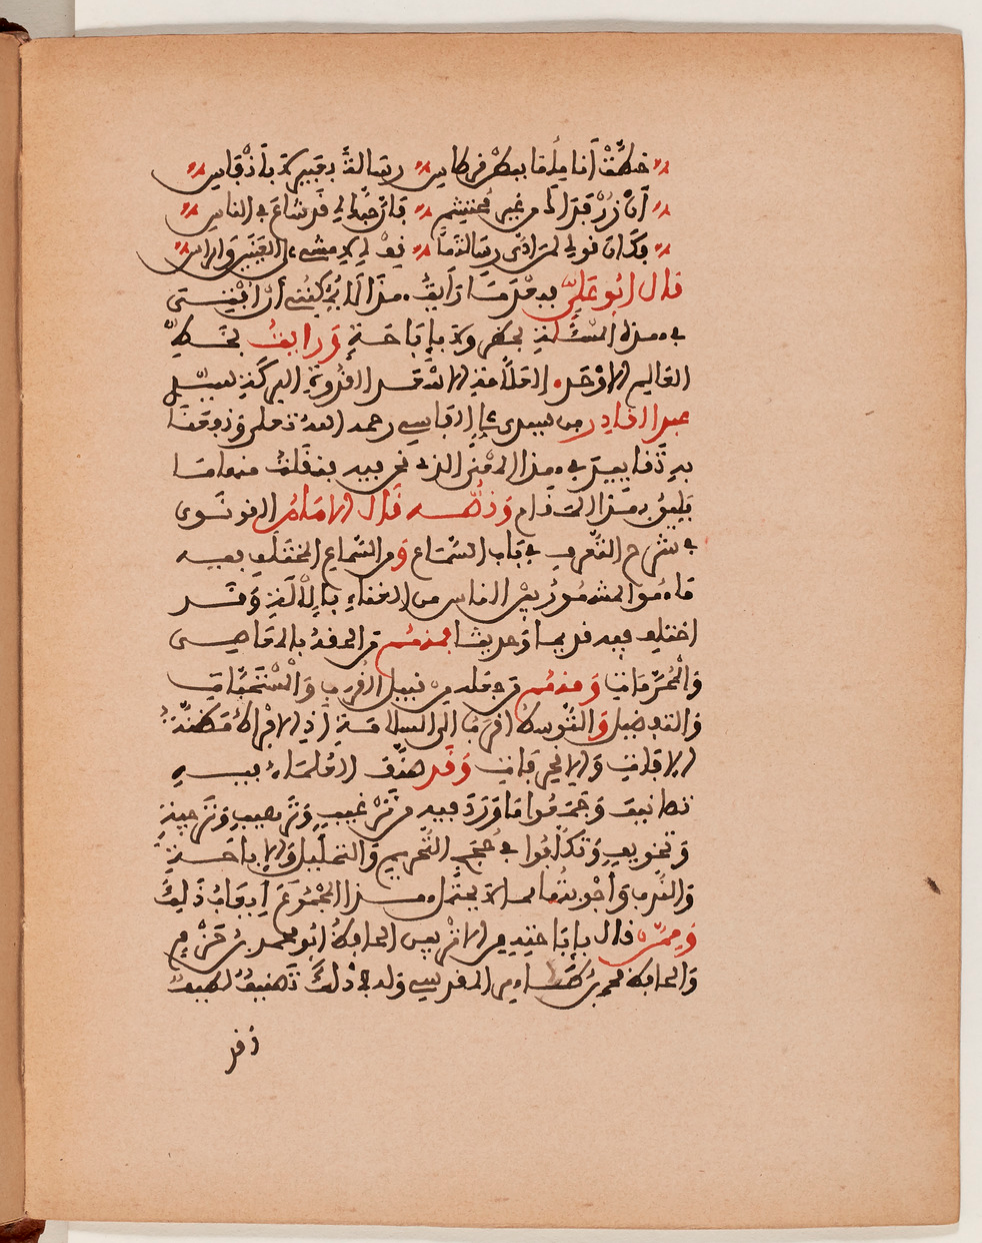 خطت أناملها ببطن قرطاس رسالة بعبير لا بأنقاس
أن زر فديتك لي من غير محتشم فإن حبك لي قد شاع في الناس
فكان قولي لمن أدى رسالتها قف لي لأمشي على العينين والراس
قال أبو علي
في هذه المسئلة بحظر ولا بإباحة ورأيت بخط
العالم الأوحد العلامة القدوة البركة سيدي
عبد القادر بن سيدي علي الفاسي رحمه الله تعالى ونفعنا
به تقاييد في هذا المعنى الذي نحن فيه فنقلت منها ما
يليق بهذا المقام ونصه قال الإمام القونوي
في شرح التعرف في باب السماع ومن السماع المختلف فيه
ما هو المشهور بين الناس من الغناء بالآلة وقد
اختلف فيه قديما وحديثا فمنهم من ألحقه بالمعاصي
والمحرمات ومنهم من جعله من قبيل القرب والمستحبات
والتفصيل والتوسط أقربها إلى السلامة إذ الإفراط مظنة
الآفات والانحرافات وقد صنف العلماء فيه
تصانيف وجمعوا ما ورد فيه من ترغيب وترهيب وتزيين
وتخويف وتكلموا في حجج التحريم والتحليل والإباحة
والندب وأجوبتها مما لا يحتمل هذا المجموع إيعاب ذلك
وممن قال بإباحته من الأئمة الحافظ أبو محمد بن حزم
والحافظ محمد بن طاهر المقدسي وله في ذلك تصنيف لطيف